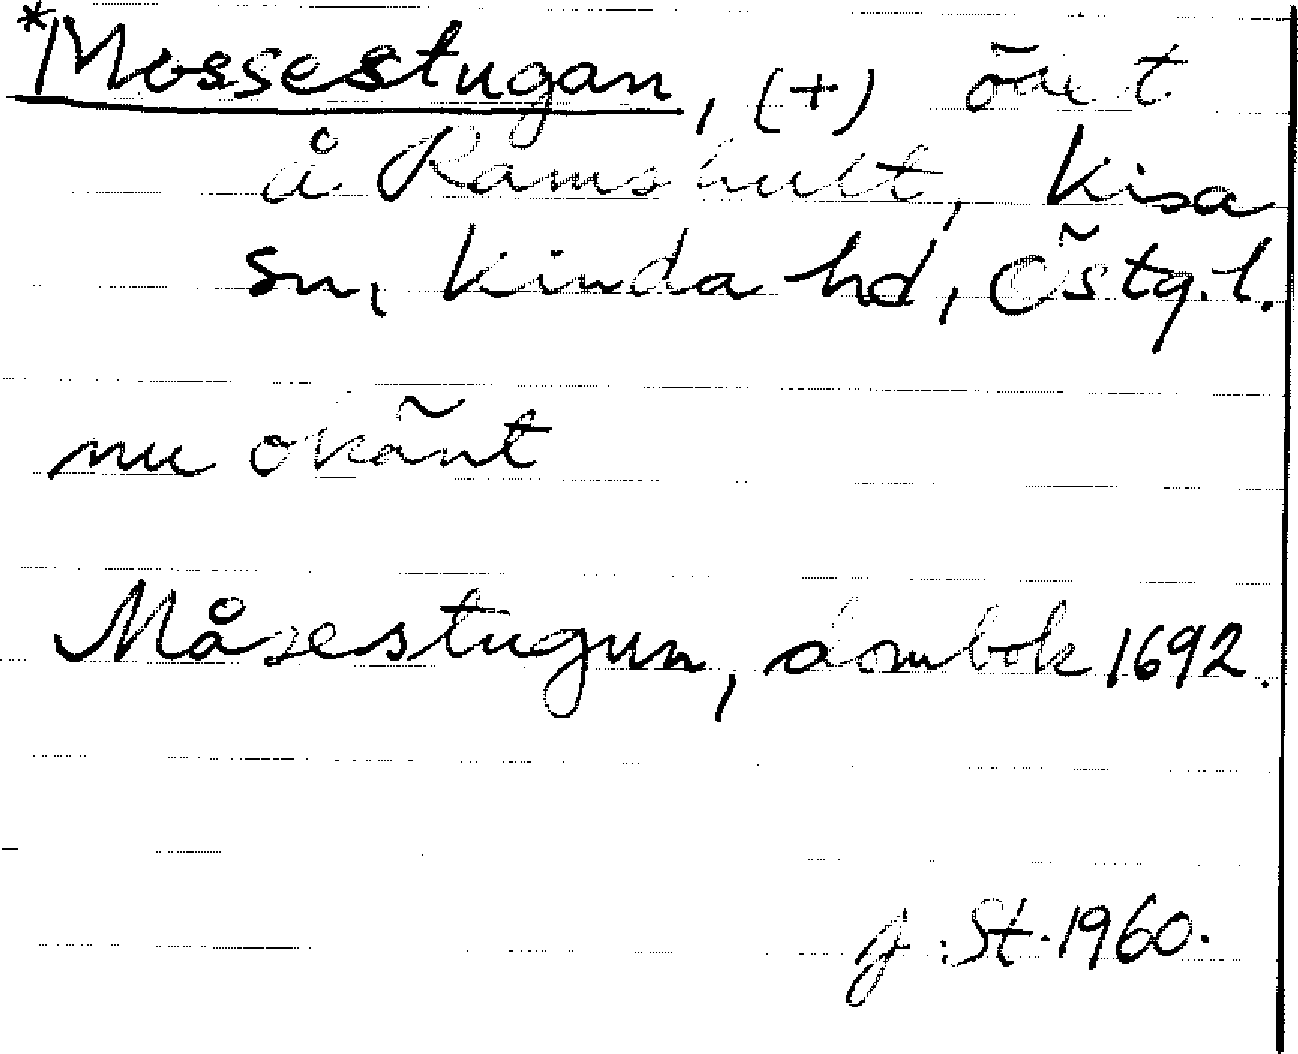 *Mossestugan, (+) öde t
å Ramshult, Kisa
sn, Kinda hd, Östg.l.
nu okänt
Måsestugun, dombok 1692.
J. St. 1960.